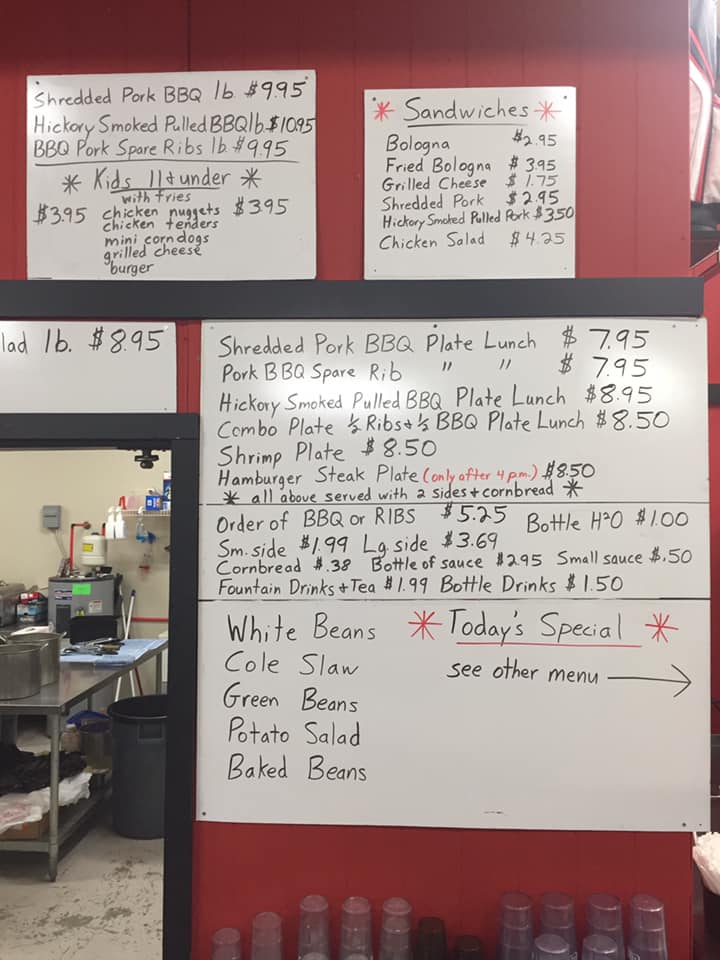 Shredded Pork BBQ lb. $9.95
Hickory Smoked Pulled BBQ lb. $10.95
BBQ Pork Spare Ribs lb. $9.95
* Kids 11 & under *
with fries
$3.95 chicken nuggets $3.95
chicken tenders
mini corn dogs
grilled cheese
burger
* Sandwiches *
Bologna $2.95
Fried Bologna $3.95
Grilled Cheese $1.75
Shredded Pork $2.95
Hickory Smoked Pulled Pork $3.50
Chicken Salad $4.25
lad lb. $8.95
Shredded Pork BBQ Plate Lunch $7.95
Pork BBQ Spare Rib " " $7.95
Hickory Smoked Pulled BBQ Plate Lunch $8.95
Combo Plate ½ Ribs + ½ BBQ Plate Lunch $8.50
Shrimp Plate $8.50
Hamburger Steak Plate (only after 4 p.m.) $8.50
* all above served with 2 sides + cornbread *
Order of BBQ or RIBS $5.25 Bottle H²O $1.00
Sm. side $1.99 Lg. side $3.69
Cornbread $.38 Bottle of sauce $2.95 Small sauce $.50
Fountain Drinks + Tea $1.99 Bottle Drinks $1.50
White Beans * Today's Special *
Cole Slaw see other menu →
Green Beans
Potato Salad
Baked Beans